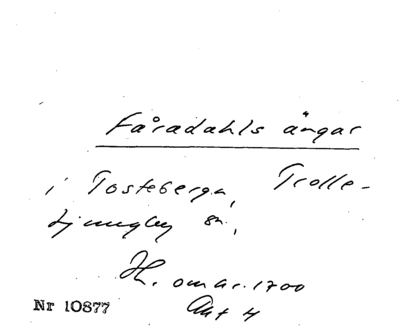 Fåradahls ängar
i Tosteberga, Trolle-
Ljungby sn.,
Sk. omkr. 1700
Akt 4
Nr 10877